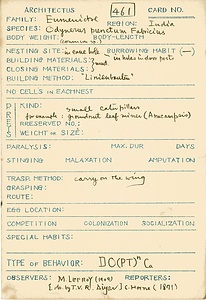 ARCHITECTUS 461 CARD NO.
FAMILY: Eumenidae REGION: India
SPECIES: Odynerus punctum Fabricius
BODY WEIGHT: BODY-LENGTH
NESTING SITE: BURROWING HABIT (—)
BUILDING MATERIALS: mud in holes in door posts
CLOSING MATERIALS:
BUILDING METHOD:
NO CELLS IN EACH NEST
PREY KIND: small caterpillars
groundnut leaf miner (Anacampsis)
PRESERVED NO.:
WEIGHT or SIZE:
PARALYSIS: MAX. DUR DAYS
STINGING MALAXATION AMPUTATION
TRASP. METHOD: carry on the wing
GRASPING:
ROUTE:
EGG LOCATION:
COMPETITION COLONIZATION SOCIALIZATION
SPECIAL HABITS:
TYPE OF BEHAVIOR:
OBSERVERS: REPORTERS:
C. Horne (1871)